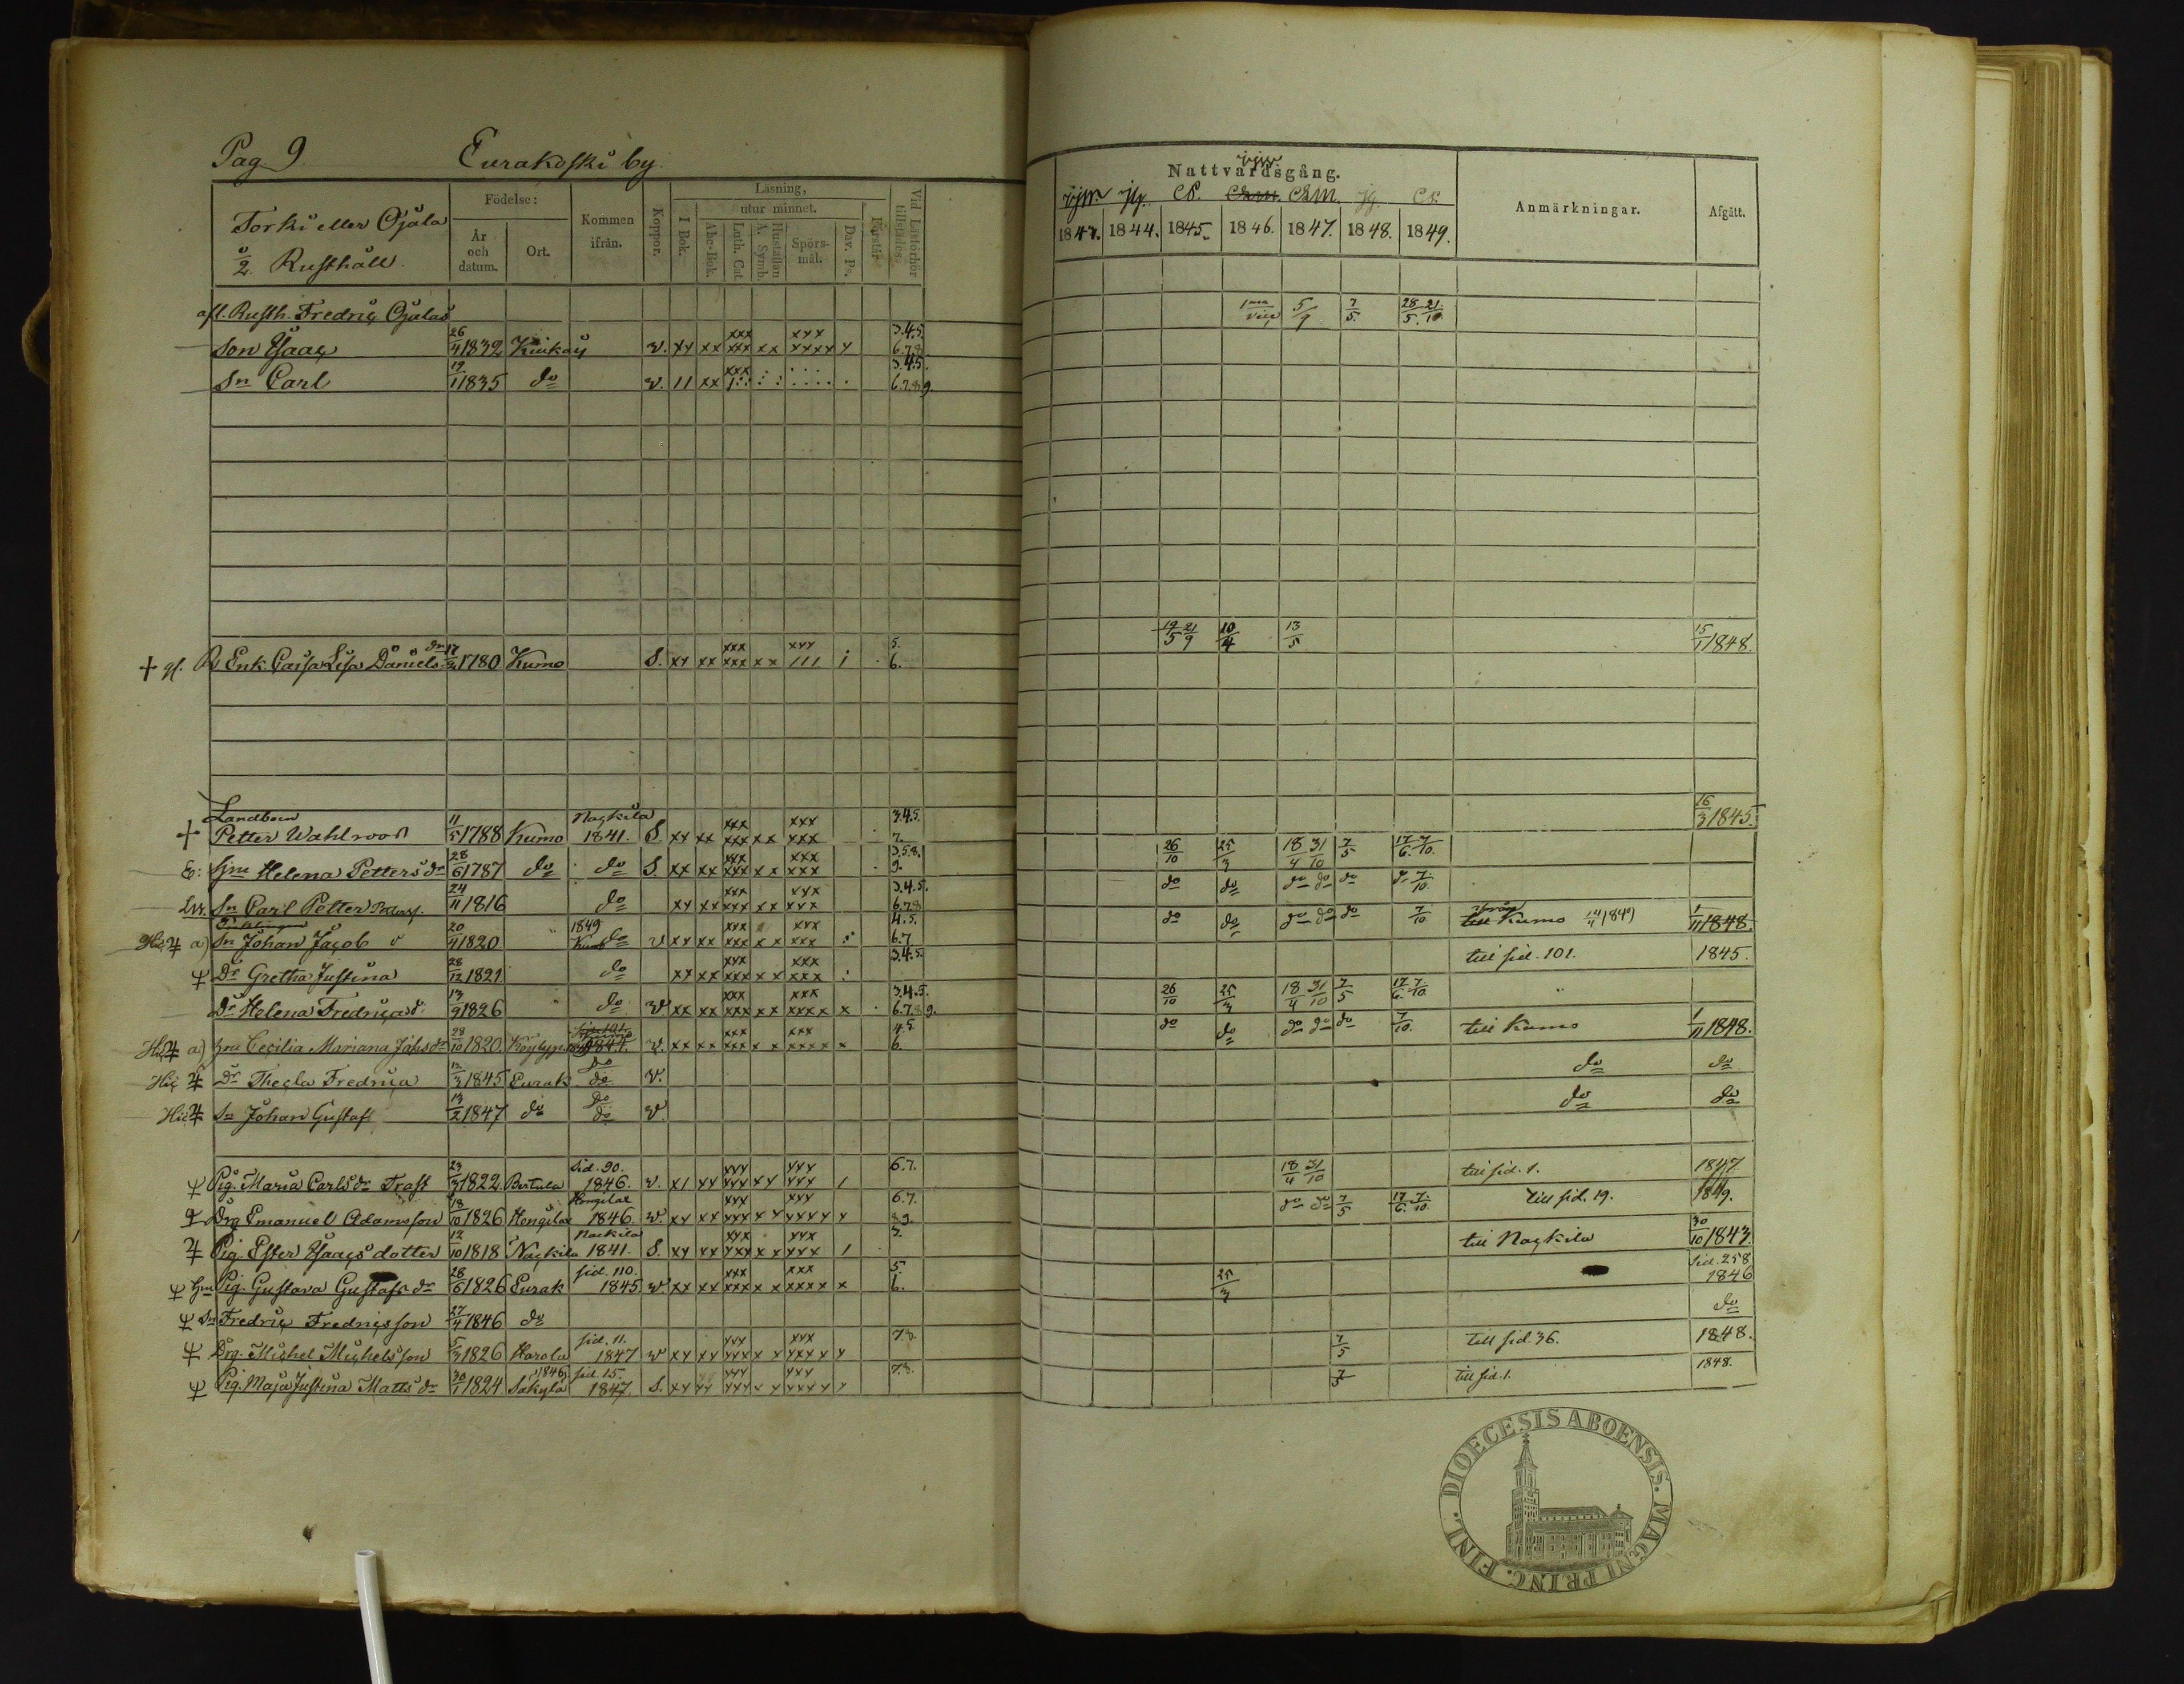 Pag 9 Eurakoski by.
Torki eller Ojala
i/2 Rusthåll.
Födelse: År och datum. Ort. Kommen ifrån. Koppor. Läsning, I Bok. utur minnet. Abc-Bok. Luth. Cat. Hustaflan A. Symb. Spörsmål. Dav. Ps. Förstår Vid Läsförhör tillstädes
Nattvardsgång. Anmärkningar. Afgått.
1843. 1844. 1845. 1846. 1847. 1848. 1849.
afl. Rusth. Fredric Ojalas
Son Isaac 26/4 1832 Kiukais v. xx xx xxx xxx xx xxx xxxx x 3.4.5. 6.7.8. 5/9 7/5 28/5 21/10
Sn Carl 19/1 1835 do v. 11 xx xxx 3.4.5. 6.7.8.9.
+ gl. R. Enk. Caisa Lisa Daniels dr 1780 Kumo S. xx xx xxx xxx xx xxx 111 5. 6. 19/5 21/9 10/4 13/5 15/1 1848.
Landbon
+ Petter Wahlroos 11/5 1788 Kumo Nackila 1841. S xx xx xxx xxx xx xxx xxx 3.4.5. 7. 16/3 1845.
E: Hjn Helena Petters dr 28/6 1787 do do S. xx xx xxx xxx xx xxx xxx 3.5.8. 9. 26/10 25/3 18/4 31/10 7/5 17/6 7/10.
Sn Carl Petter 24/11 1816 do xx xx xxx xxx xx xxx xxx 3.4.5. 6.7.8 do do do do do 7/10.
a) Sn Johan Jacob 20/4 1820 1849 Kumo do v xx xx xxx xxx xx xxx xxx 4.5. 6.7 do do do do do 7/10 till från Kumo 1849 1/11 1848.
Dr Gretha Justina 28/12 1821 do xx xx xxx xxx xx xxx xxx 3.4.5. till sid. 101. 1845.
Dr Helena Fredrica 13/9 1826 do v xx xx xxx xxx xx xxx xxxx x 3.4.5. 6.7.8 9. 26/10 25/3 18/4 31/10 7/5 17/6 7/10.
a) Hru Cecilia Mariana Jahs dr 28/10 1820. 1844. v. xx xx xxx xxx xx xxx xxxx x 4.5. 6. do do do do do 7/10. till Kumo 1/11 1848.
Hic Dr Thecla Fredrica 12/3 1845 Eurak do do v. do do
Hic Sn Johan Gustaf 13/2 1847 do do do v. do do
Pig. Maria Carls dr Trast 23/3 1822. Bertula sid. 90. 1846. v. x1 xx xxx xxx xx xxx xxx 1 6.7. 18/4 31/10 till sid. 1. 1847
Drg Emanuel Adamsson 18/10 1826 Hengilax Hengilax 1846. v. xx xx xxx xxx xx xxx xxxx x 6.7. 8.9. do do 7/5 17/6 7/10. till sid. 19. 1849.
Pig. Ester Isaacs dotter 12/10 1818 Nackila Nackila 1841. S. xx xx xxx xxx xx xxx xxx 1 3. till Nackila 30/10 1843.
Hru Pig. Gustava Gustafs dr 28/6 1826 Eurak sid. 110. 1845 v. xx xx xxx xxx xx xxx xxxx x 5. 6. 25/3 Sid. 258 1846
Sn Fredric Fredricsson 27/4 1846 do do
Drg. Michel Michelsson 5/3 1826 Harola sid. 11. 1847 v xx xx xxx xxx xx xxx xxxx x 7.8. 7/5 till sid. 36. 1848.
Pig. Maja Justina Matts dr 30/1 1824 Säkylä 1846 sid. 15. 1847 S. xx xx xxx xxx xx xxx xxxx x 7.8. 7/5 till sid. 1. 1848.
DIOECESIS ABOENSIS. MAGNI PRINC. FINL.